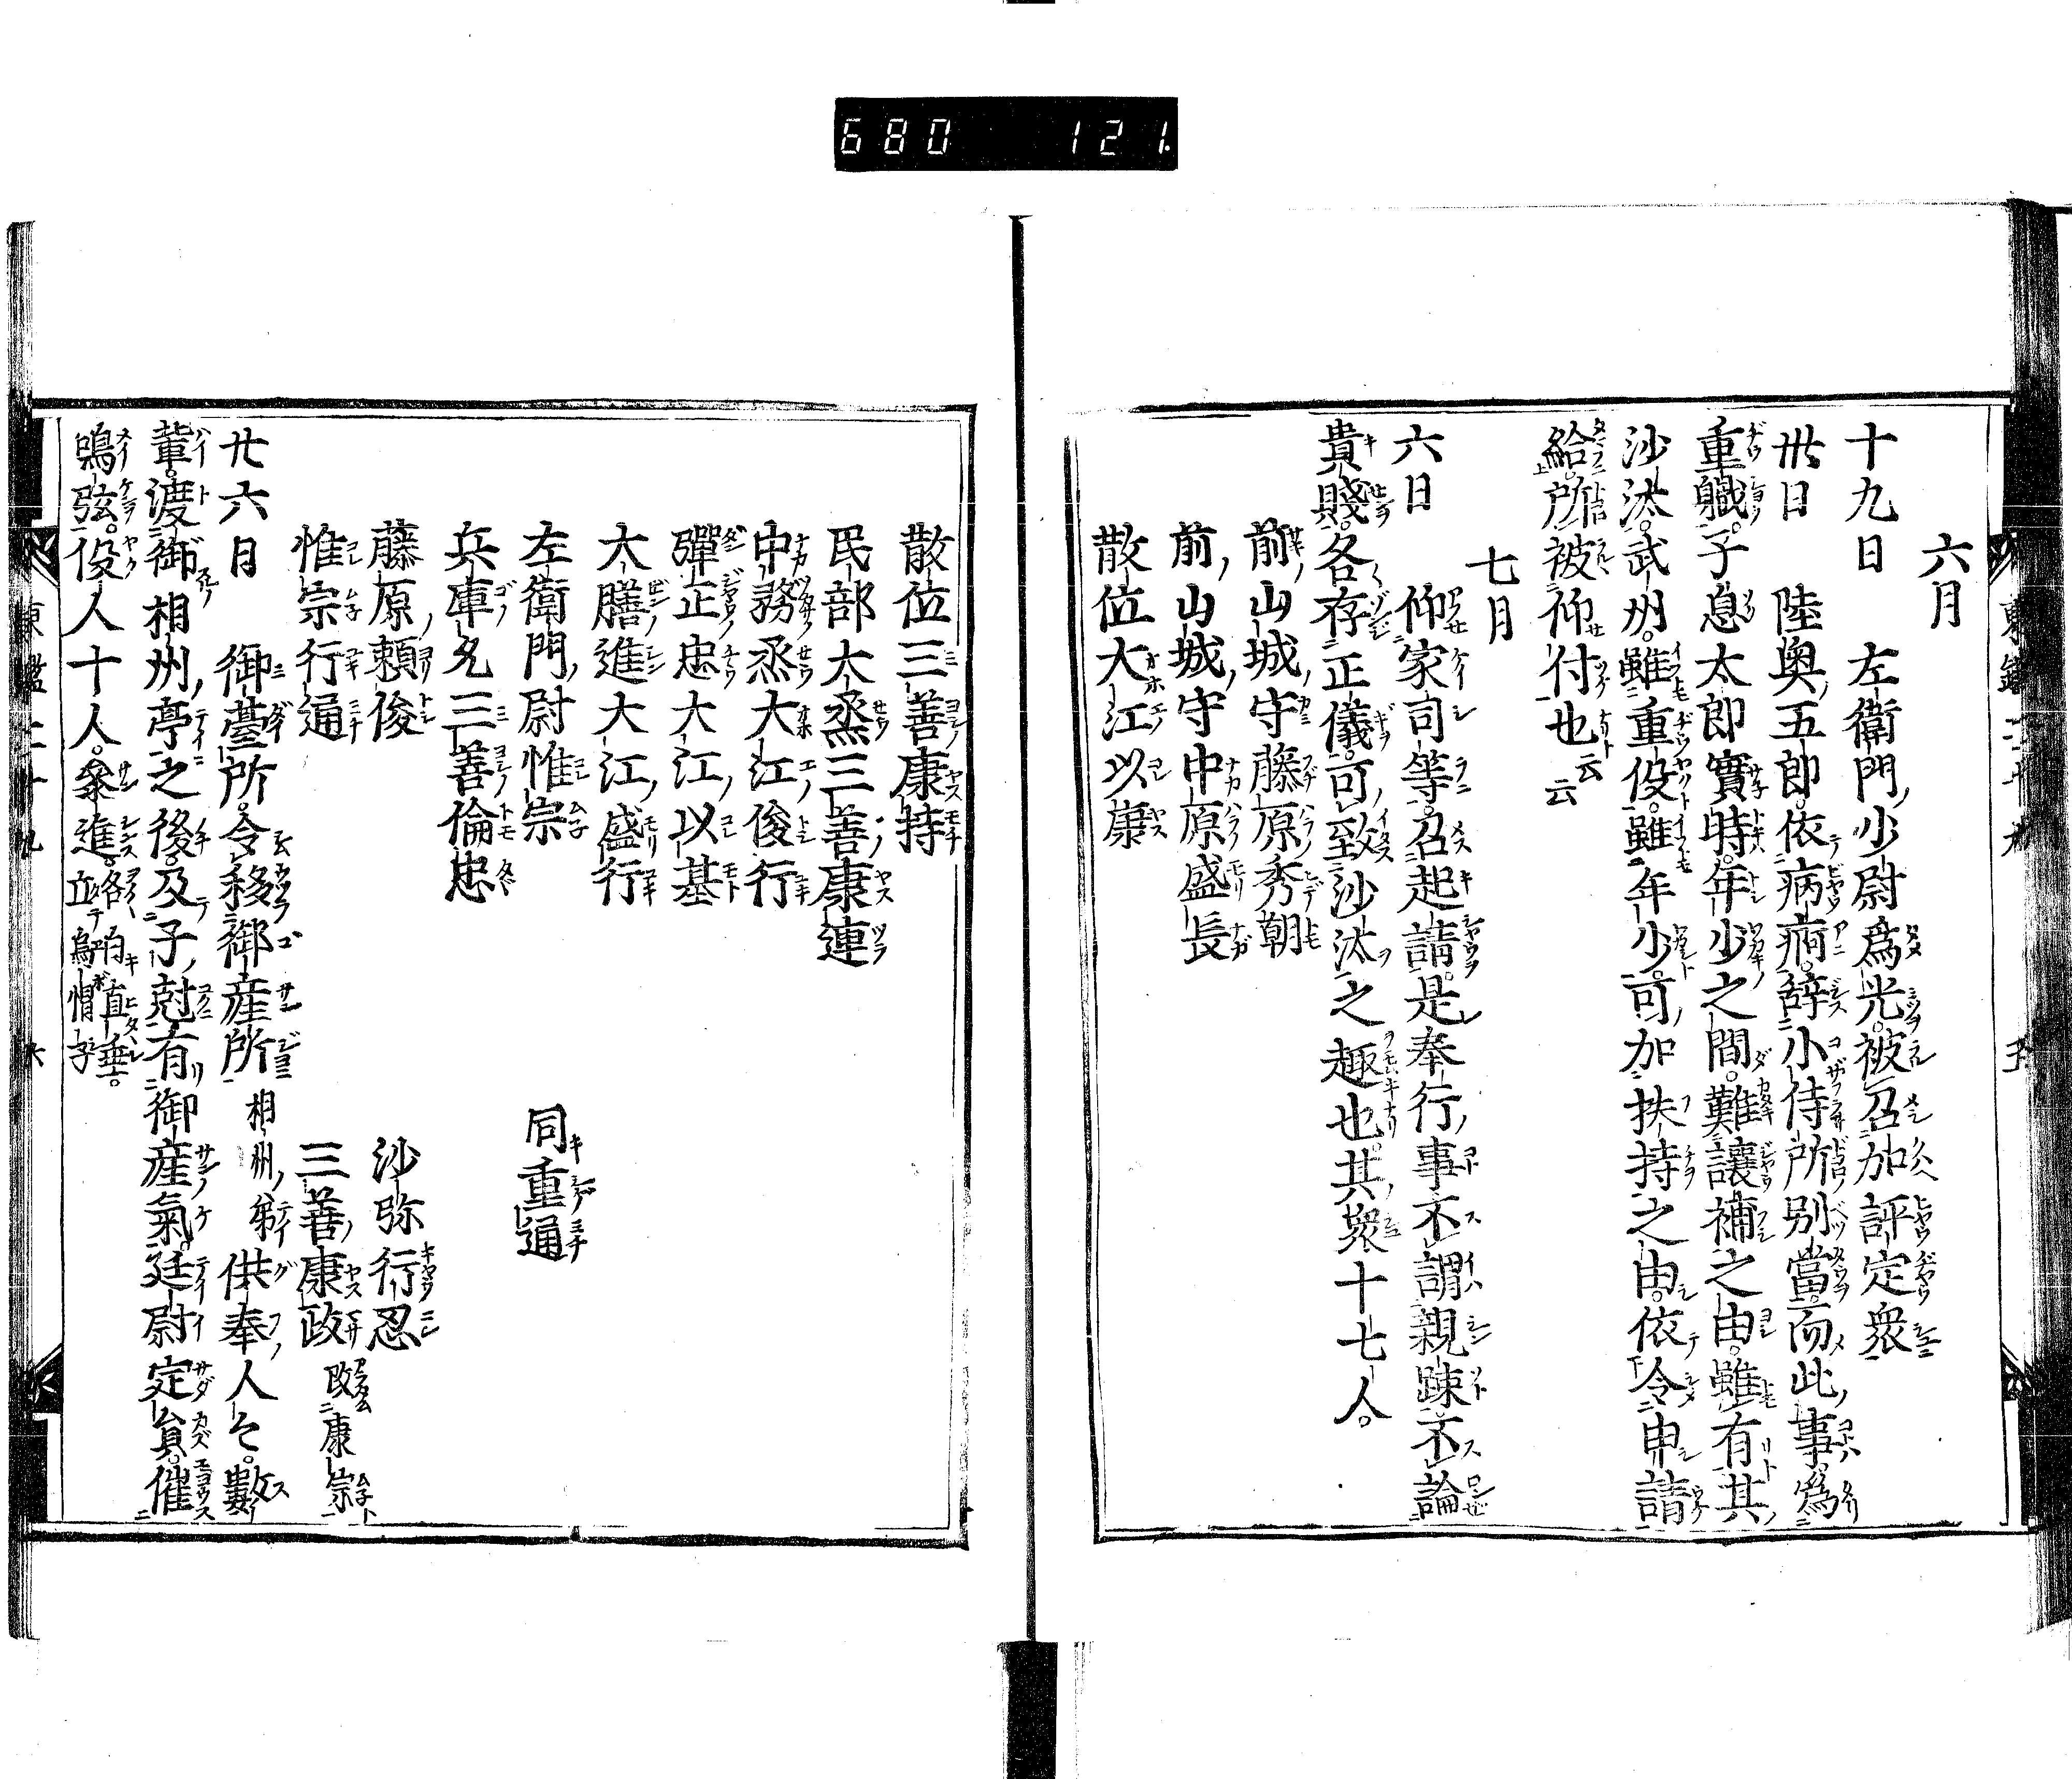 680 121
六月
十九日 左衛門少尉爲光被召加評定衆
卅日 陸奥五郎依病痾辞小侍所別當而此事爲
重軄子息太郎實時年少之間難讓補之由雖有其
沙汰武州雖重役雖年少可加扶持之由依令申請
給所被仰付也云云
七月
六日 仰家司等召起請是奉行事不謂親踈不論
貴賤各存正儀可致沙汰之趣也其衆十七人
前山城守藤原秀朝
前山城守中原盛長
散位大江以康
散位三善康持
民部大烝三善康連
中務烝大江俊行
彈正忠大江以基
大膳進大江盛行
左衛門尉惟宗 同重通
兵庫允三善倫忠
藤原頼俊 沙弥行忍
惟宗行通 三善康政改康宗
廿六月 御臺所令移御産所相州第供奉人々數
輩渡御相州亭之後及子尅有御産氣廷尉定員催
鳴弦役人十人參進各白直垂立烏帽子
東鑑二十九 六